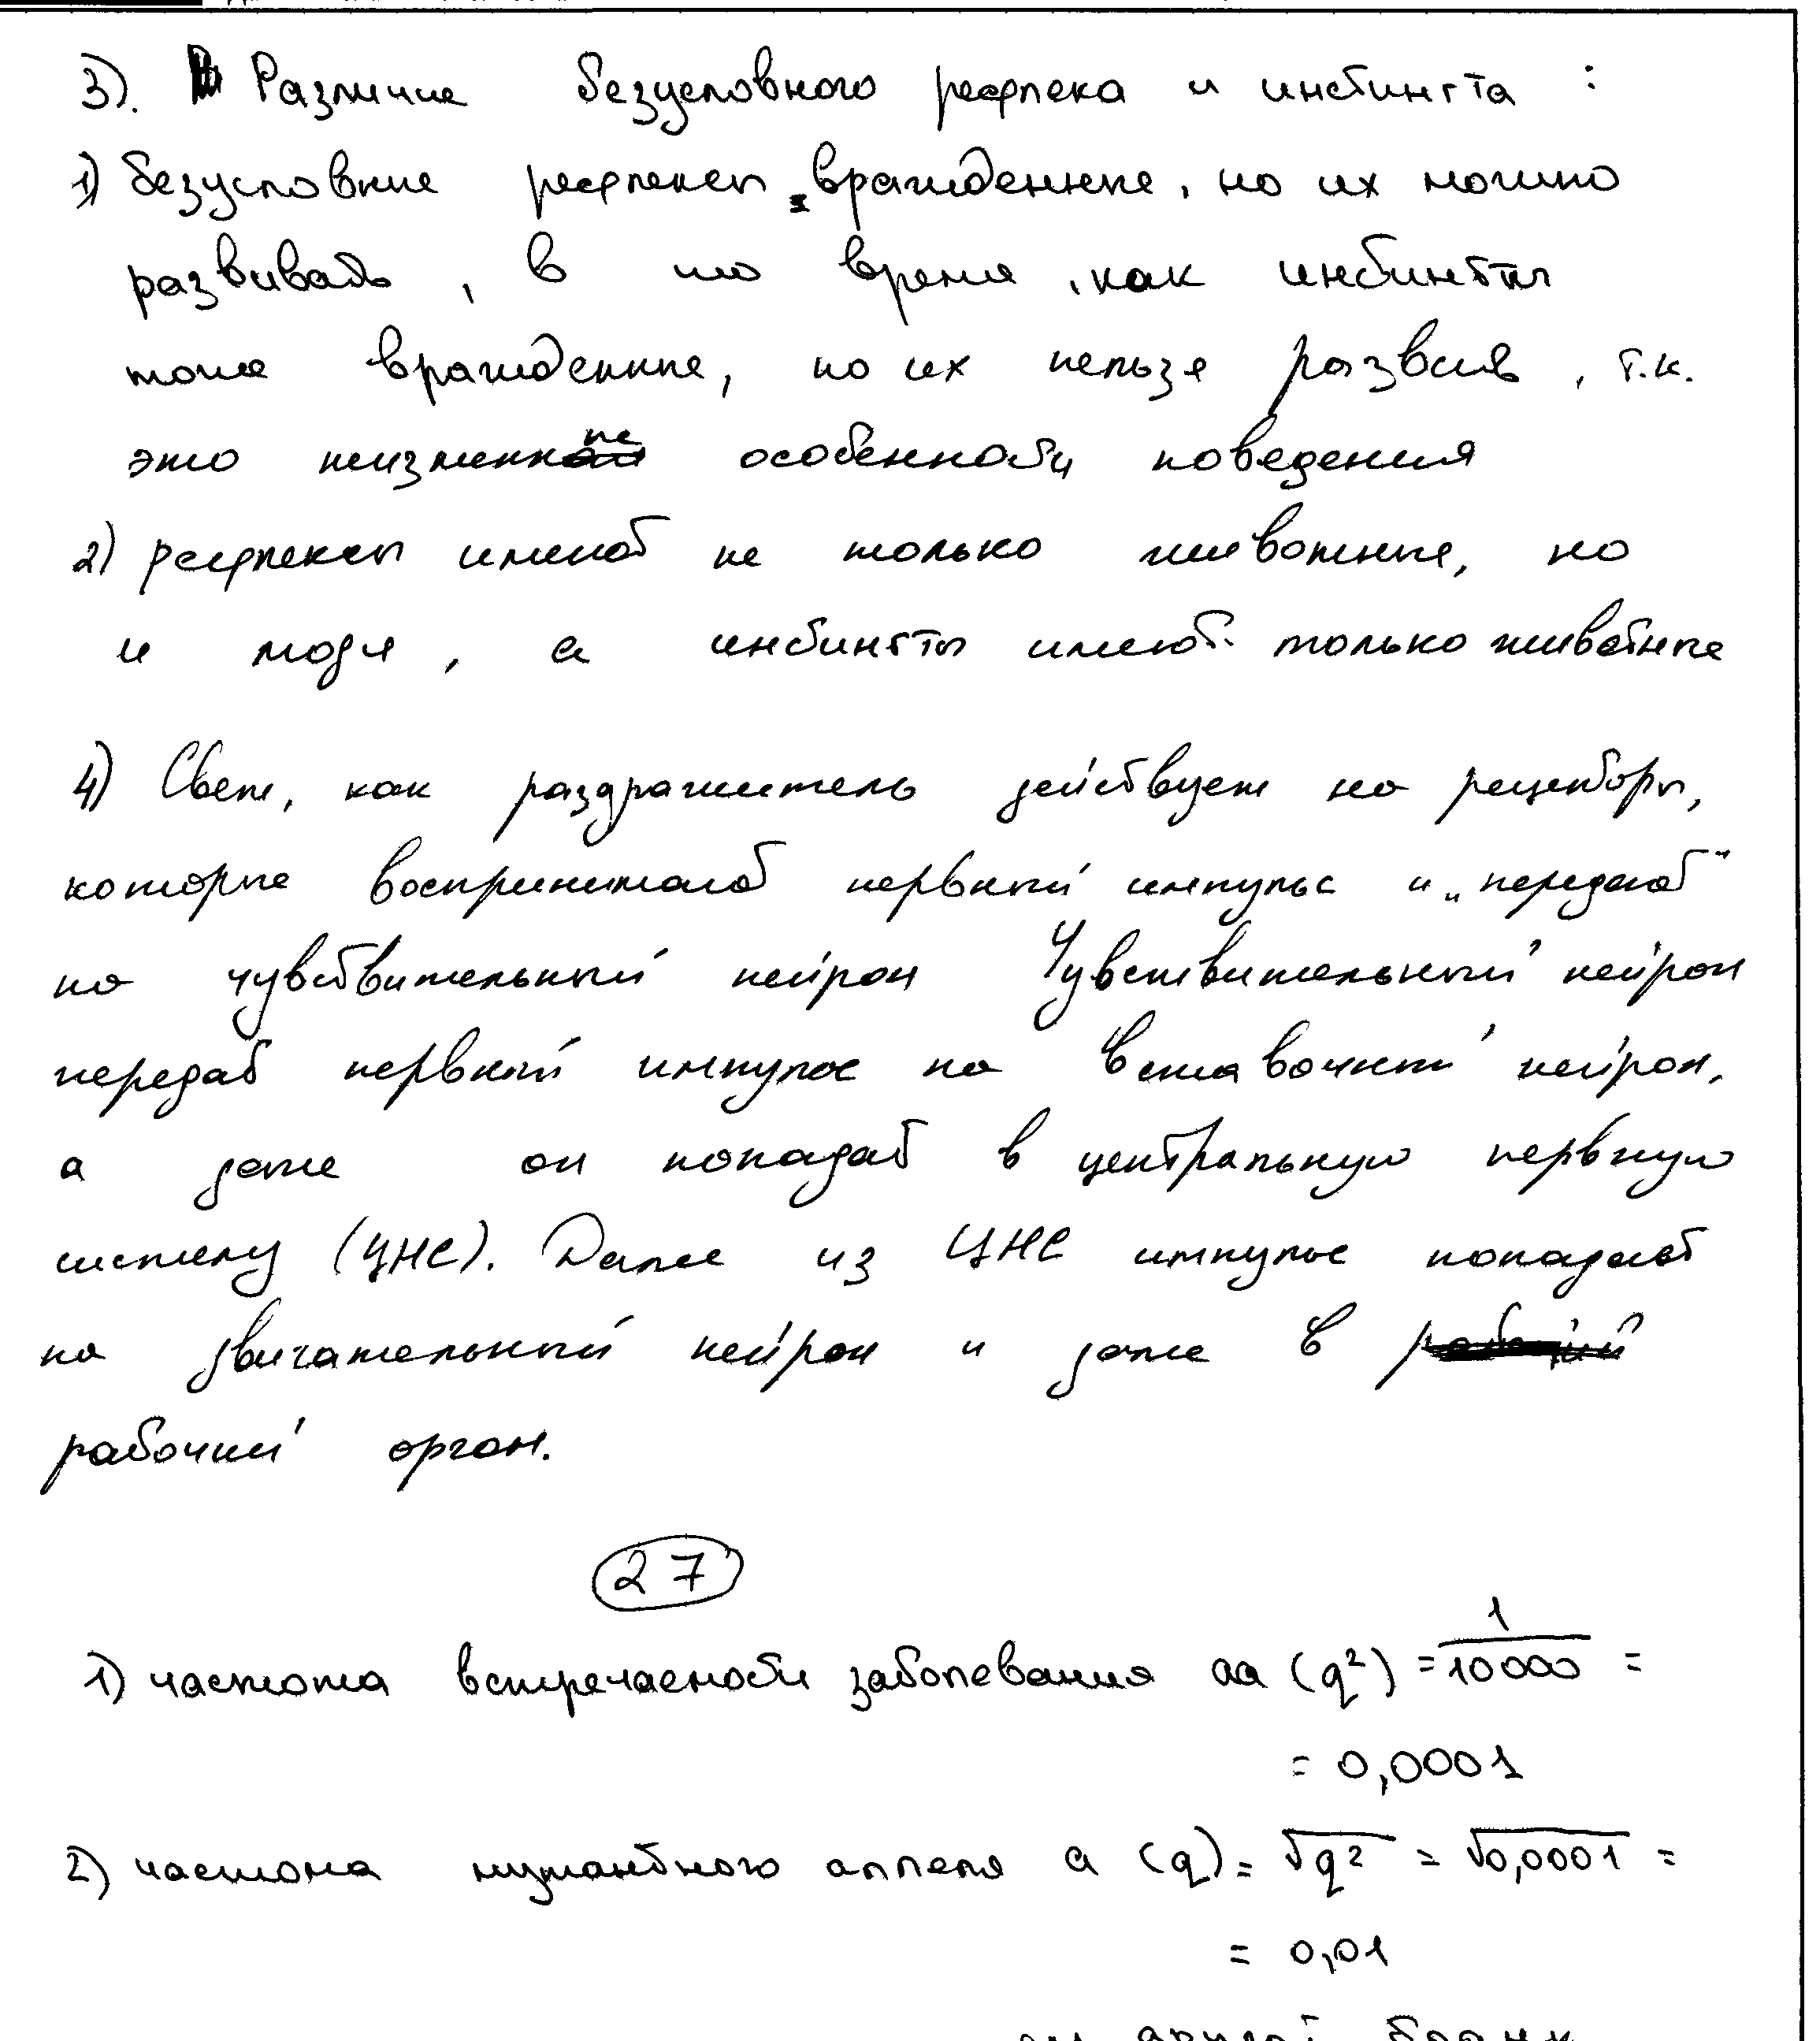 3). Различие безусловного рефлека и инстингта :
1) безусловные рефлексы вражденные, но их можно
развивать, в то время, как инстинкты
тоже вражденные, но их нельзя развив, т.к.
это неизменные особенности поведения
2) рефлексы имеют не только животные, но
и люди, а инстингты имеют только животные
4) Свет, как раздражитель действует на рецепторы,
которые воспринимают нервный импульс и "передают"
на чувствительный нейрон Чувствительный нейрон
передаёт нервный импульс на вставочный нейрон,
а далее он попадает в центральную нервную
систему (ЦНС). Далее из ЦНС импульс попадает
на двигательный нейрон и далее в рабочий
рабочий орган.
27
1) частота встречаемости заболевания aa (q²) = 1/10000 =
= 0,0001
2) частона мутантного аллеля a (q) = √q² = √0,0001 =
= 0,01
см другой бланк